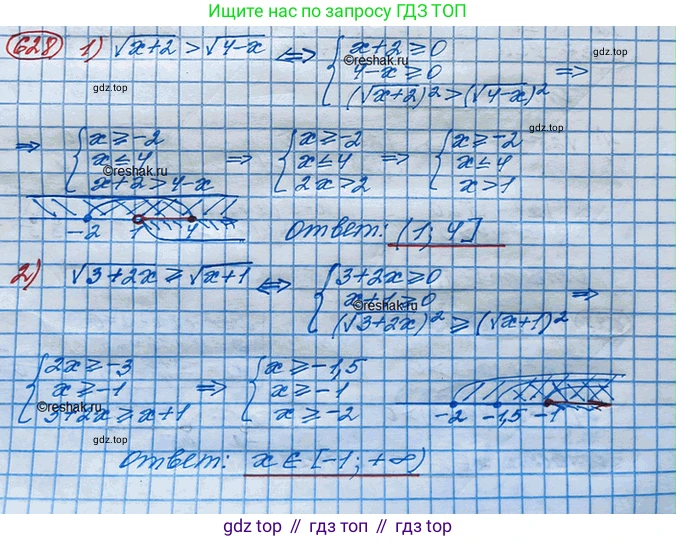 Ищите нас по запросу ГДЗ ТОП
628 1) √x+2 > √4-x ⇔ { x+2 ≥ 0
4-x ≥ 0 ⇒
(√x+2)² > (√4-x)²
©reshak.ru
gdz.top
gdz.top
⇒ { x ≥ -2
x ≤ 4
x+2 > 4-x
⇒ { x ≥ -2
x ≤ 4
2x > 2
⇒ { x ≥ -2
x ≤ 4
x > 1
©reshak.ru
gdz.top
-2 1 4
ответ: (1; 4]
2) √3+2x ≥ √x+1 ⇔ { 3+2x ≥ 0
x+1 ≥ 0 ⇒
(√3+2x)² ≥ (√x+1)²
©reshak.ru
gdz.top
{ 2x ≥ -3
x ≥ -1
3+2x ≥ x+1
⇒ { x ≥ -1,5
x ≥ -1
x ≥ -2
©reshak.ru
-2 -1,5 -1
gdz.top
gdz.top
ответ: x ∈ [-1; +∞)
gdz.top
gdz.top // гдз топ // gdz.top